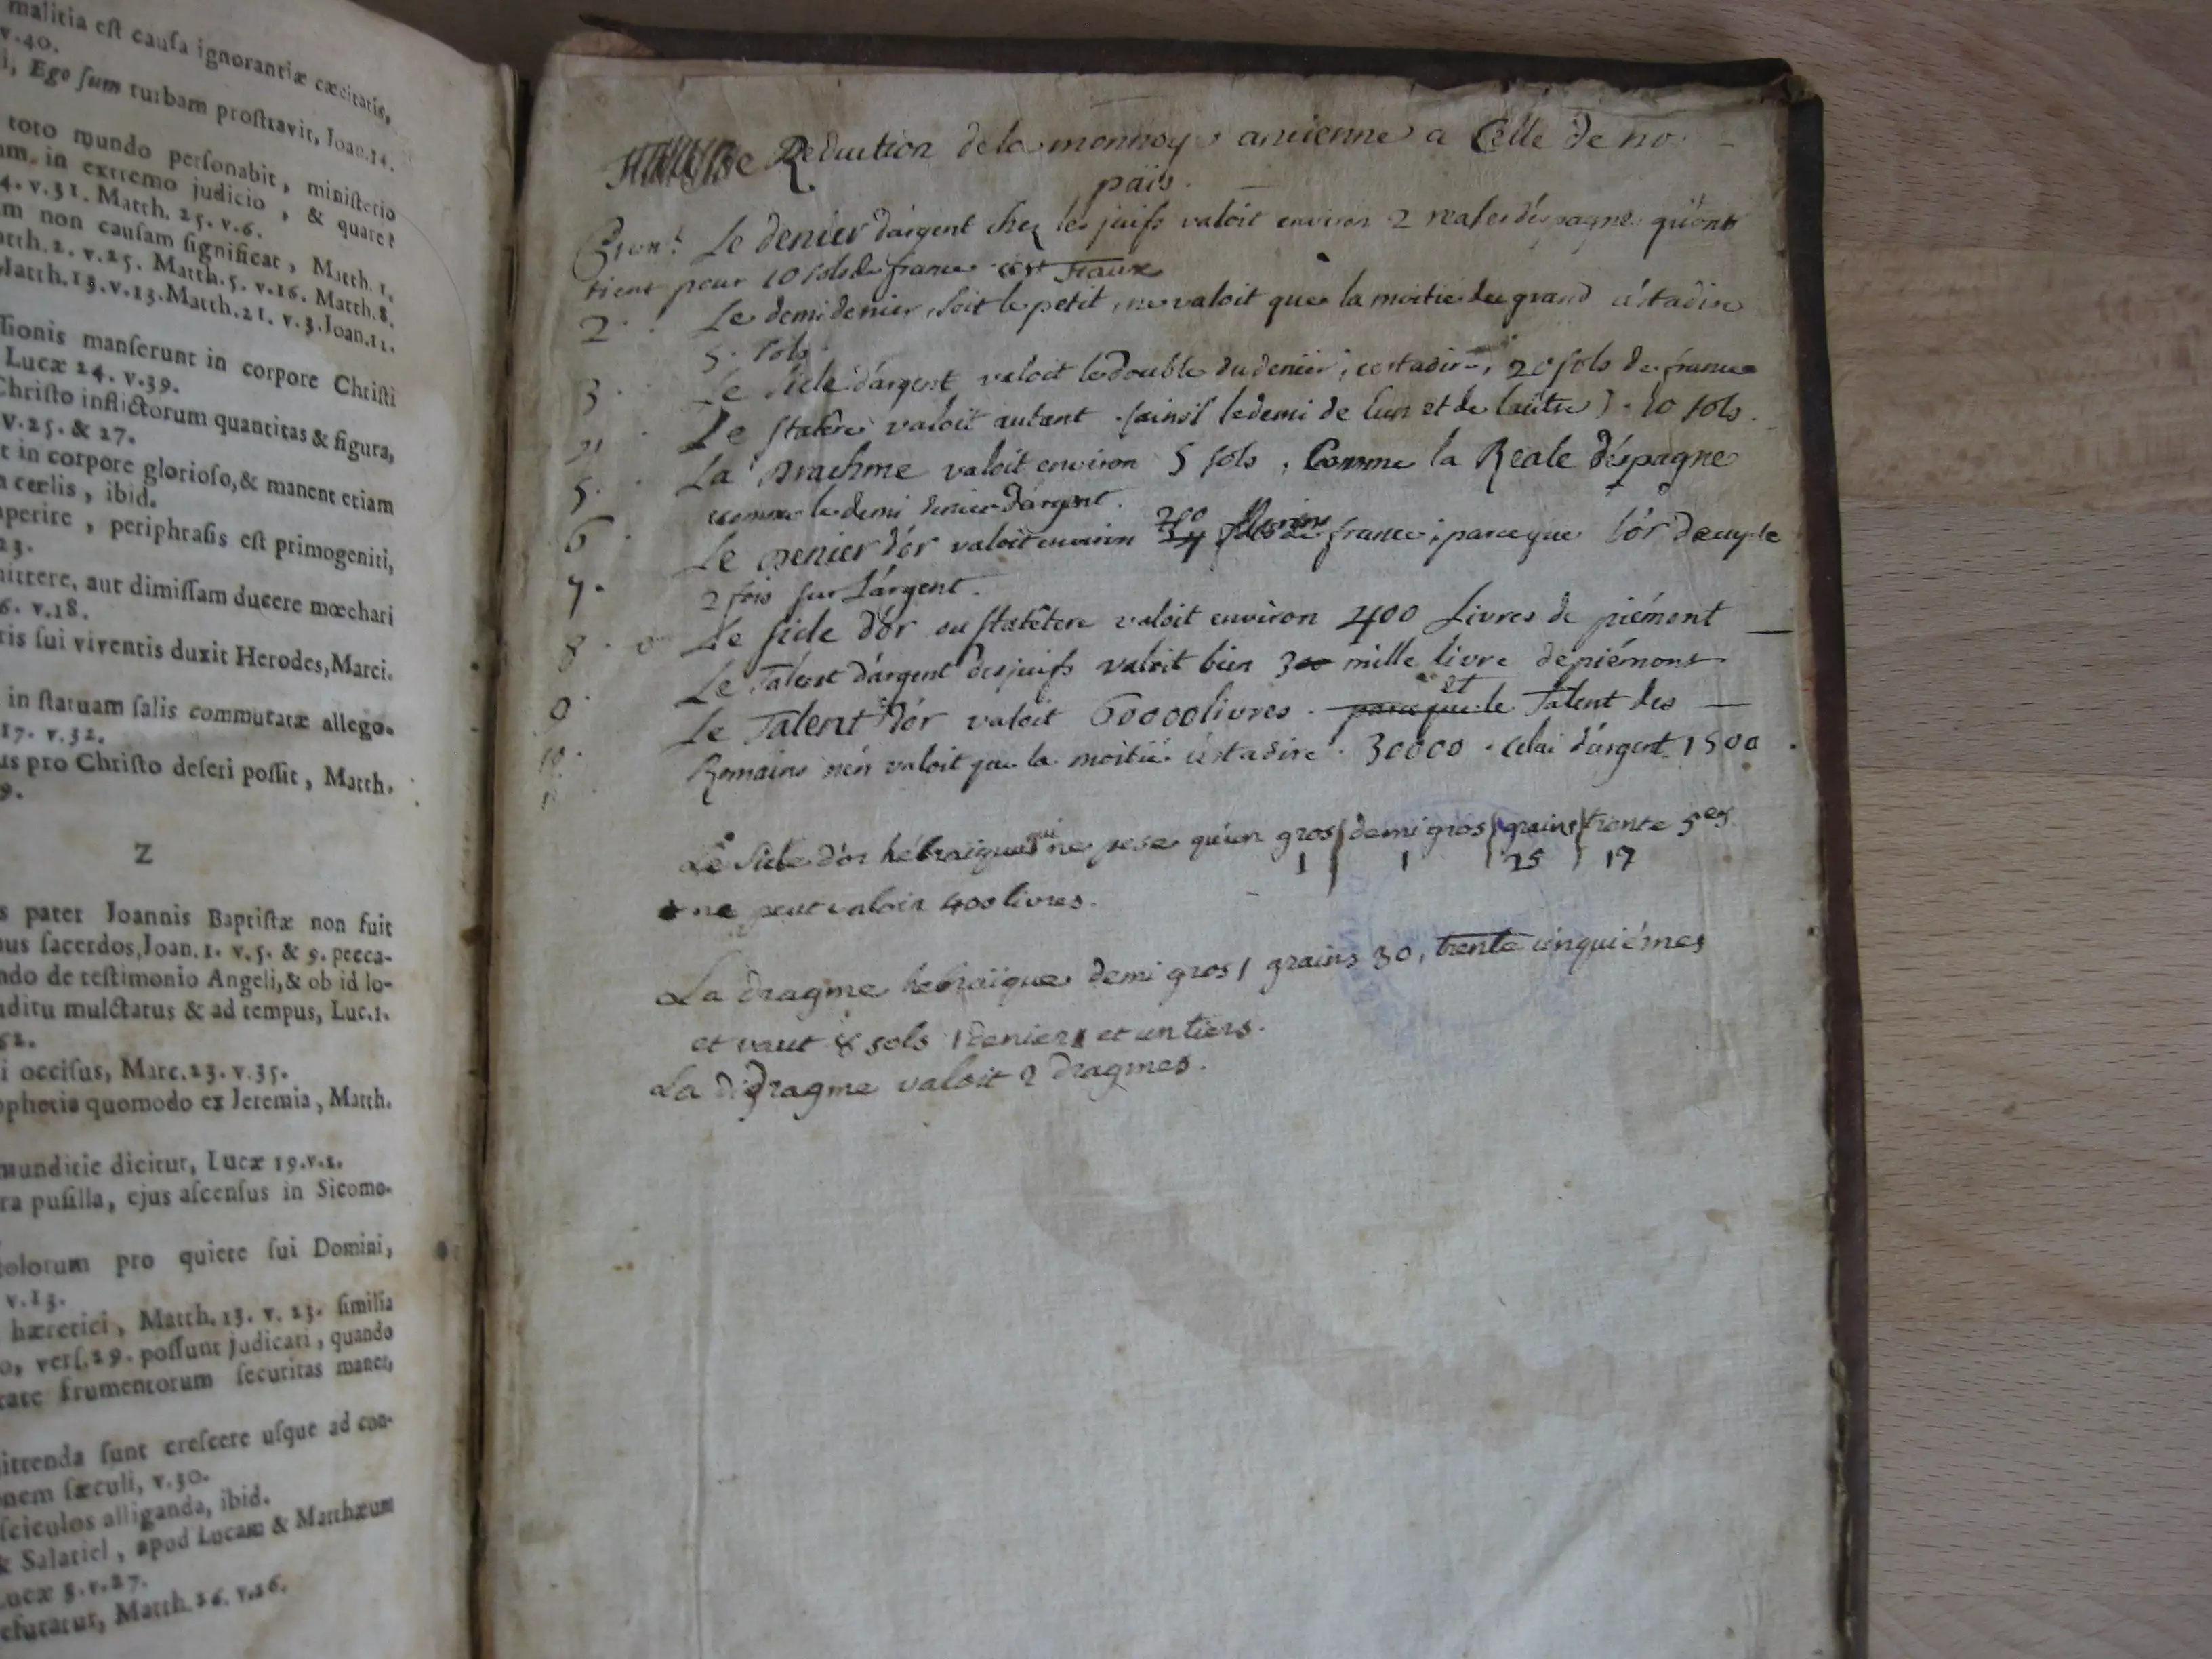 malitia eſt cauſa ignorantiæ cæcitatis,
v.40.
i, Ego ſum turbam proſtravit, Joan.14.
toto mundo perſonabit, miniſterio
am, in extremo judicio, & quare?
4. v.31. Matth. 25. v.6.
m non cauſam ſignificat, Matth. 1.
atth. 2. v.25. Matth. 5. v.16. Matth. 8.
Matth.13.v.13.Matth.21. v.3.Joan.11.
ſionis manſerunt in corpore Chriſti
Lucæ 24. v.39.
Chriſto inflictorum quantitas & figura,
v.25. & 27.
t in corpore glorioſo,& manent etiam
cœlis, ibid.
aperire, periphraſis eſt primogeniti,
23.
mittere, aut dimiſſam ducere mœchari
6. v.18.
ris ſui viventis duxit Herodes, Marci.
in ſtatuam ſalis commutatæ allego-
17. v.32.
us pro Chriſto deſeri poſſit, Matth.
9.
Z
s pater Joannis Baptiſtæ non fuit
us ſacerdos, Joan. 1. v.5. & 9. pecca-
ndo de teſtimonio Angeli,& ob id lo-
ditu mulctatus & ad tempus, Luc.1.
62.
i occiſus, Marc.23. v.35.
ophetia quomodo ex Jeremia, Matth.
munditie dicitur, Lucæ 19.v.2.
ra puſilla, ejus aſcenſus in Sicomo-
olorum pro quiete ſui Domini,
v.13.
hæretici, Matth. 13. v. 23. ſimilia
o, verſ.29. poſſunt judicari, quando
tate frumentorum ſecuritas manet,
ittenda ſunt creſcere uſque ad con-
nem ſæculi, v.30.
ſciculos alliganda, ibid.
& Salatiel, apud Lucam & Matthæum
Lucæ 3.v.27.
efutatur, Matth. 16. v.16.
Reduction de la monnoye ancienne a Celle de no
païs.
Le denier d'argent chez les juifs valoit environ 2 reales d'espagne qu'on
tient pour 10 sols de france c'est faux
2. Le demi denier, soit le petit, ne valoit que la moitié du grand c'estadire
5. sols
3. Le sicle d'argent valoit le double du denier, cestadire, 20 sols de france
Le statere valoit autant. (ainsi le demi de l'un et de l'autre). 10 sols.
5. La Drachme valoit environ 5 sols, Comme la Reale d'espagne
comme le demi denier d'argent.
6. Le Denier d'or valoit environ 200 france, parceque l'or
7. 2 fois sur l'argent.
8. Le sicle d'or ou statêtere valoit environ 400 Livres de piémont
Le Talent d'argent des juifs valoit bien 3 mille livre de piémont
9. Le Talent d'or valoit 60000 livres. parceque et le Talent des
10. Romains n'en valoit que la moitié c'estadire. 30000. celui d'argent 1500.
Le Sicle d'or hébraïque qui ne pese qu'un gros demi gros grains trente 5es
1 1 25 17
ne peut valoir 400 livres.
La dragme hebraïque demi gros 1 grains 30, trente cinquiémes
et vaut 8 sols 1 denier et un tiers.
La didragme valoit 2 dragmes.